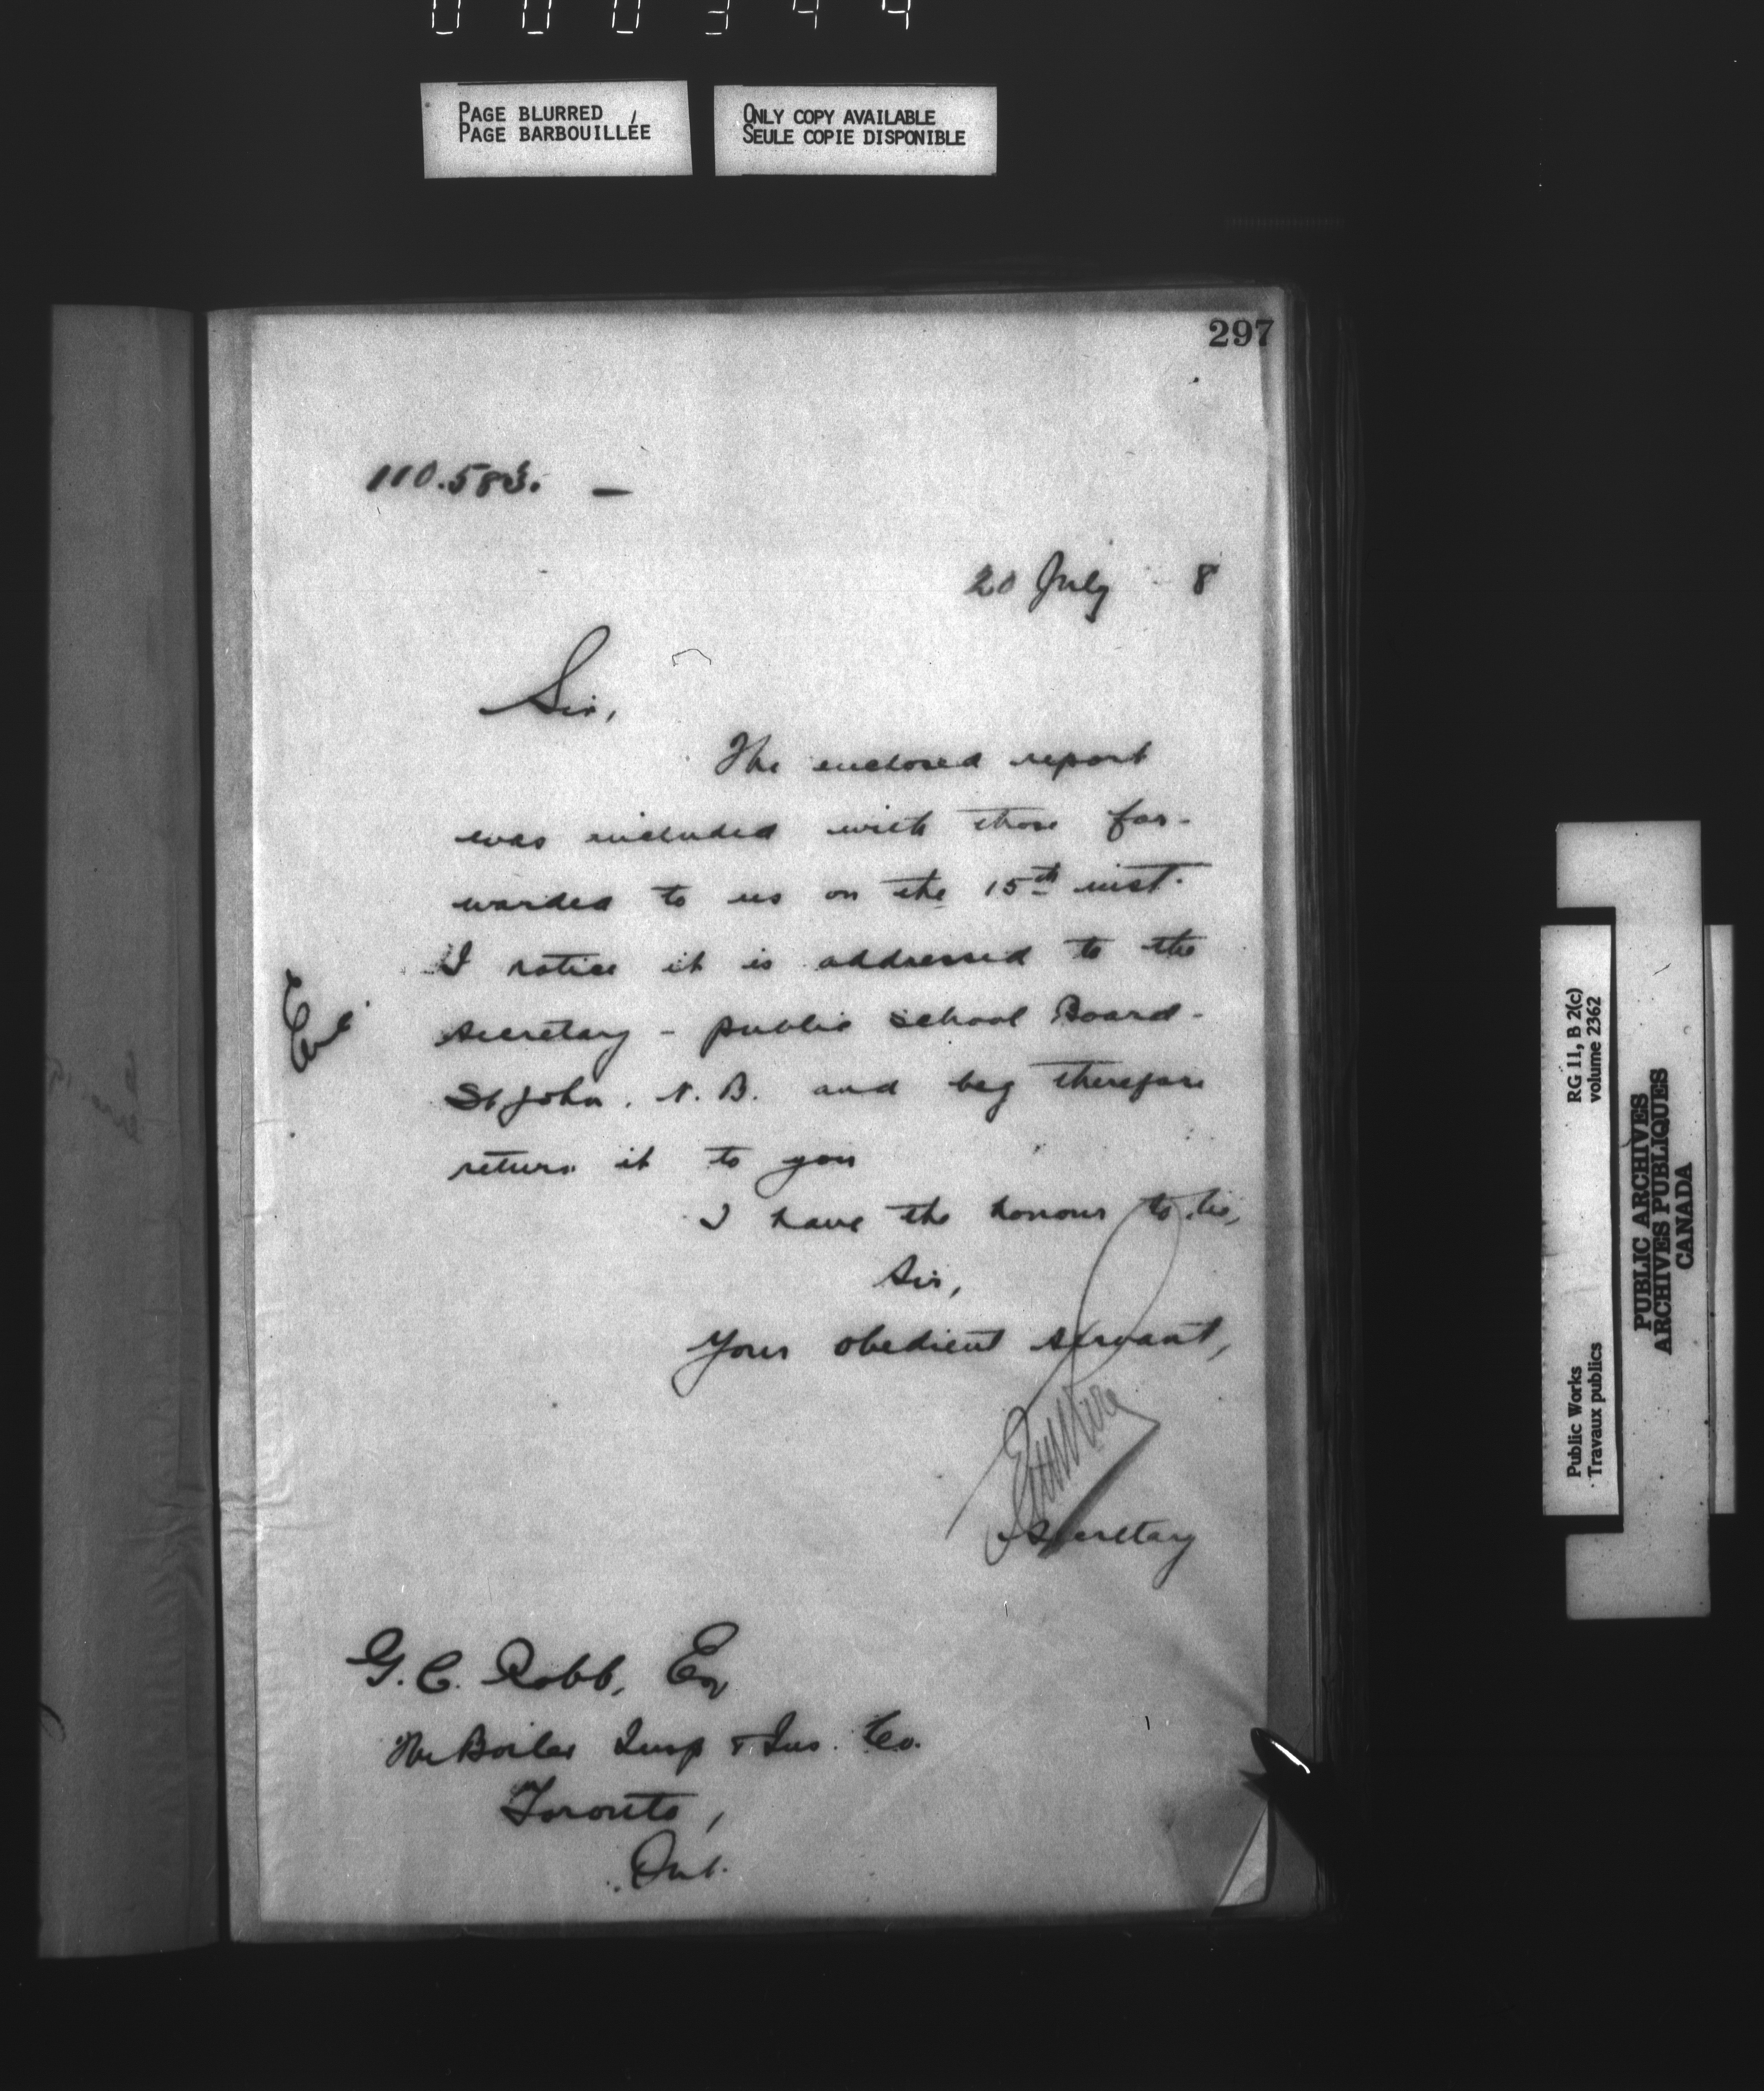 000344
PAGE BLURRED
PAGE BARBOUILLÉE
ONLY COPY AVAILABLE
SEULE COPIE DISPONIBLE
297
110.583. —
20 July 8
Sir,
The enclosed report
was included with those for-
warded to us on the 15th inst.
I notice it is addressed to the
Secretary - public School Board -
St John. N. B. and beg therefore
return it to you
I have the honour to be,
Sir,
Your obedient servant,
Secretary
G. C. Robb, Esq
The Boiler Insp & Ins. Co.
Toronto,
Ont.
Public Works
Travaux publics
RG 11, B 2(c)
volume 2362
PUBLIC ARCHIVES
ARCHIVES PUBLIQUES
CANADA